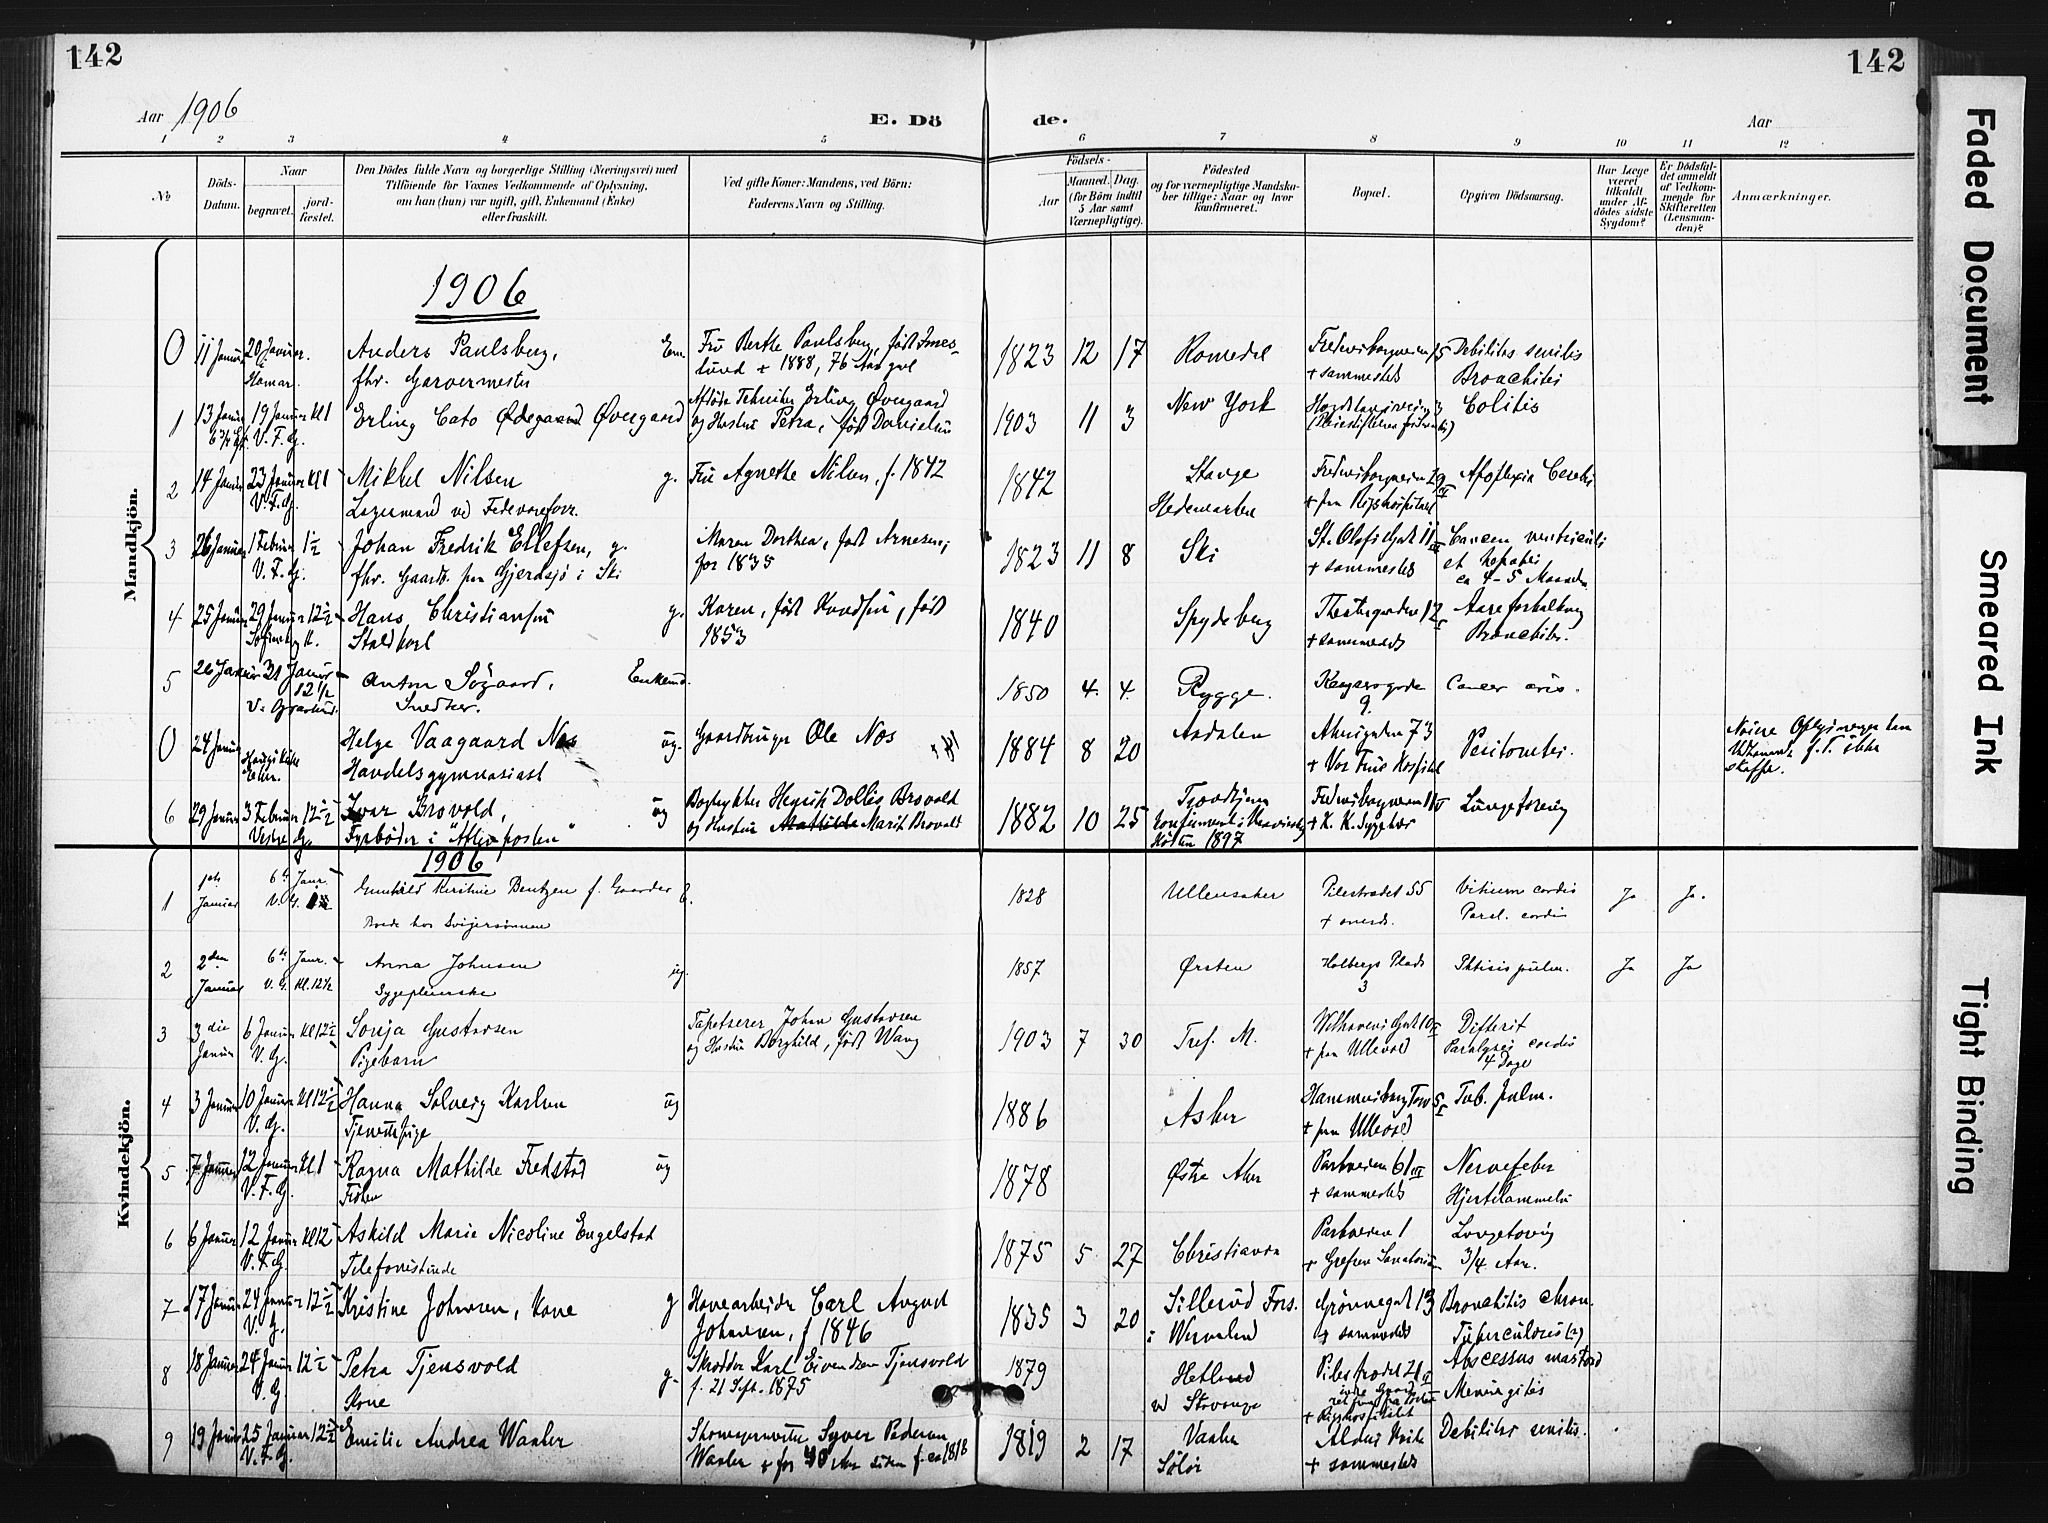 142
142
Aar 1906
E. Dö
de.
Aar
1 2 3 4 5 6 7 8 9 10 11 12
No
Döds-Datum.
Naar
begravet.
jord-fæstet.
Den Dödes fulde Navn og borgerlige Stilling (Næringsvei) med
Tilföiende for Voxnes Vedkommende af Oplysning,
om han (hun) var ugift, gift, Enkemand (Enke)
eller fraskilt.
Ved gifte Koner: Mandens, ved Börn:
Faderens Navn og Stilling.
Födsels-
Aar
Maaned. Dag.
(for Börn indtil
5 Aar samt
Værnepligtige).
Födested
og for værnepligtige Mandska-
ber tillige: Naar og hvor
konfirmeret.
Bopæl.
Opgiven Dödsaarsag.
Har Læge
været
tilkaldt
under Af-
dödes sidste
Sygdom?
Er Dödsfal-
det anmeldt
af Vedkom-
mende for
Skifteretten
(Lensman-
den)?
Anmærkninger.
Mandkjön.
1906
0 11 Januar 20 Januar. Anders Paulsberg, Em. Fru Berthe Paulsberg, født 1823 12 17 Romedal 5 Debilitas senilis
Hamar. fhr. Garvermester + 1888, 76 Aar gl + sammesteds Bronchitis
1 13 Januar 19 Januar Kl 1 Erling Cato Ødegaard Øvergaard Erling Øvergaard 1903 11 3 New York 3 Colitis
V. F. G. og Hustru Petra, født Danielsen
2 14 Januar 23 Januar Kl 1 Mikkel Nilsen g. Fru Agnethe Nilsen, f. 1842 1842 Stange Apoplexia Cerebri
V. F. G. Lagermand ved + paa Rigshospitalet
Hedemarken
3 26 Januar 1 Februar 1½ Johan Fredrik Ellefsen, g. Maren Dorthea, født Arnesen, 1823 11 8 Ski St. Olafs Gade 11 III Cancer ventriculi
V. F. G. fhr. Gaardb. paa Gjerdsjø i Ski for 1835 + sammesteds et hepatis
ca 4-5 Maaneder
4 25 Januar 29 Januar 12½ Hans Christiansen g. Karen, født Knudsen, født 1840 Spydeberg Theatergaden 12 Aareforkalkning
Sofienberg K. Staldkarl 1853 + sammesteds Bronchitis.
5 26 Januar 31 Januar 12½ Anton Sögaard, Enkemd. 1850 4. 4. Rygge. 9. Cancer oris.
Snedker.
0 24 Januar Helge Vaagaard Nos ug. Gaardbruger Ole Nos 1884 8 20 Aadalen Akersgaden 73 Peritonitis.
Handelsgymnasiast + Vor Frue Hospital
skaffe.
6 29 Januar 3 Februar 12½ Ivar Brovold, ug Bogtrykker Henrik Dollis Brovold 1882 10 25 Lungetæring
Vestre G. Fyrbøder i "Aftenposten" og Hustru Mathilde Marit Brovold + K. K. Sygehus
1897
1906
Kvindekjön.
1 1ste Januar 6te Januar. V. G. Gunhild Kirstine Bentzen f. Gaarder E. 1828 Ullensaker Pilestrædet 55 Vitium cordis Ja Ja.
Boede hos Svigersønnen Paral. cordis
2 2den Januar 6te Januar. V. G. Kl. 12½ Anna Johnsen ug. 1857 Ørsten Holbergs Plads 3 Phtisis pulm. Ja Ja
Sygepleierske
3 3die Januar 6 Januar Kl 12½ V. G. Sonja Gustavsen Tapetserer John Gustavsen 1903 7 30 Tref. M. Welhavens Gade 10 Difterit
Pigebarn og Hustru Borghild, født Wang + paa Ullevold Paralysis cordis
4 Dage
4 3 Januar 10 Januar Kl 12½ Hanna Solveig Karlsen ug 1886 Asker Hammersborg Torv 5 Tub. pulm.
V. G. Tjenestepige + paa Ullevold
5 7 Januar 12 Januar Kl 1 Ragna Mathilde Fredstad ug 1878 Østre Aker Parkveien 61 III Nervefeber
V. F. G. Frøken + sammesteds Hjertelammelse
6 6 Januar 12 Januar Kl 12 Askild Marie Nicoline Engelstad 1875 5 27 Christiania Parkveien 1 Lungetæring
V. F. G. Telefonistinde + Grefsen Sanatorium 3/4 Aar.
7 17 Januar 24 Januar 12½ Kristine Johnsen, Kone g Havearbeider Carl August 1835 3 20 Sillerud Fors. Grønnegade 13 Bronchitis chron.
V. G. Johnsen, f 1846 i Wermland + sammesteds Tuberculosis (?)
8 18 Januar 24 Januar 12½ Petra Tjensvold g. Skrædder Karl Eivendsen Tjensvold 1879 Hetland Pilestrædet 21 Abscessus mastoid
V. G Kone f. 21 Sept. 1875 ved Stavanger + Rigshospitalet Meningitis
9 19 Januar 25 Januar 12½ Emilie Andrea Waaler Syver Pedersen 1819 2 17 Vaaler Debilitas senilis.
V. F. G. Waaler + for 40 Aar siden f. ca 1818 Solør + sammesteds
Faded Document
Smeared Ink
Tight Binding